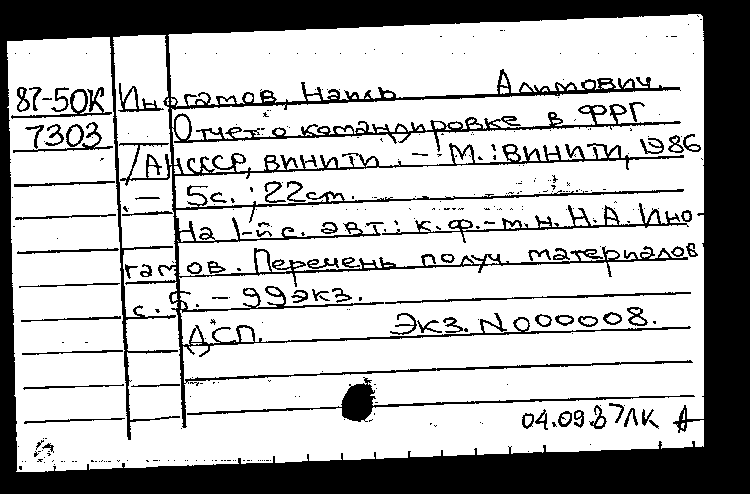 87-50К Иногамов, Наиль Алимович.
7303 Отчет о командировке в ФРГ
/АНСССР, ВИНИТИ. - М.: ВИНИТИ, 1986
.- 5с.; 22см.
На 1-й с. авт.: к.ф.-м.н. Н.А. Ино-
гамов. Перечень получ. материалов
с. 5. - 99экз.
ДСП. Экз. N000008.
04.09.87ЛК А